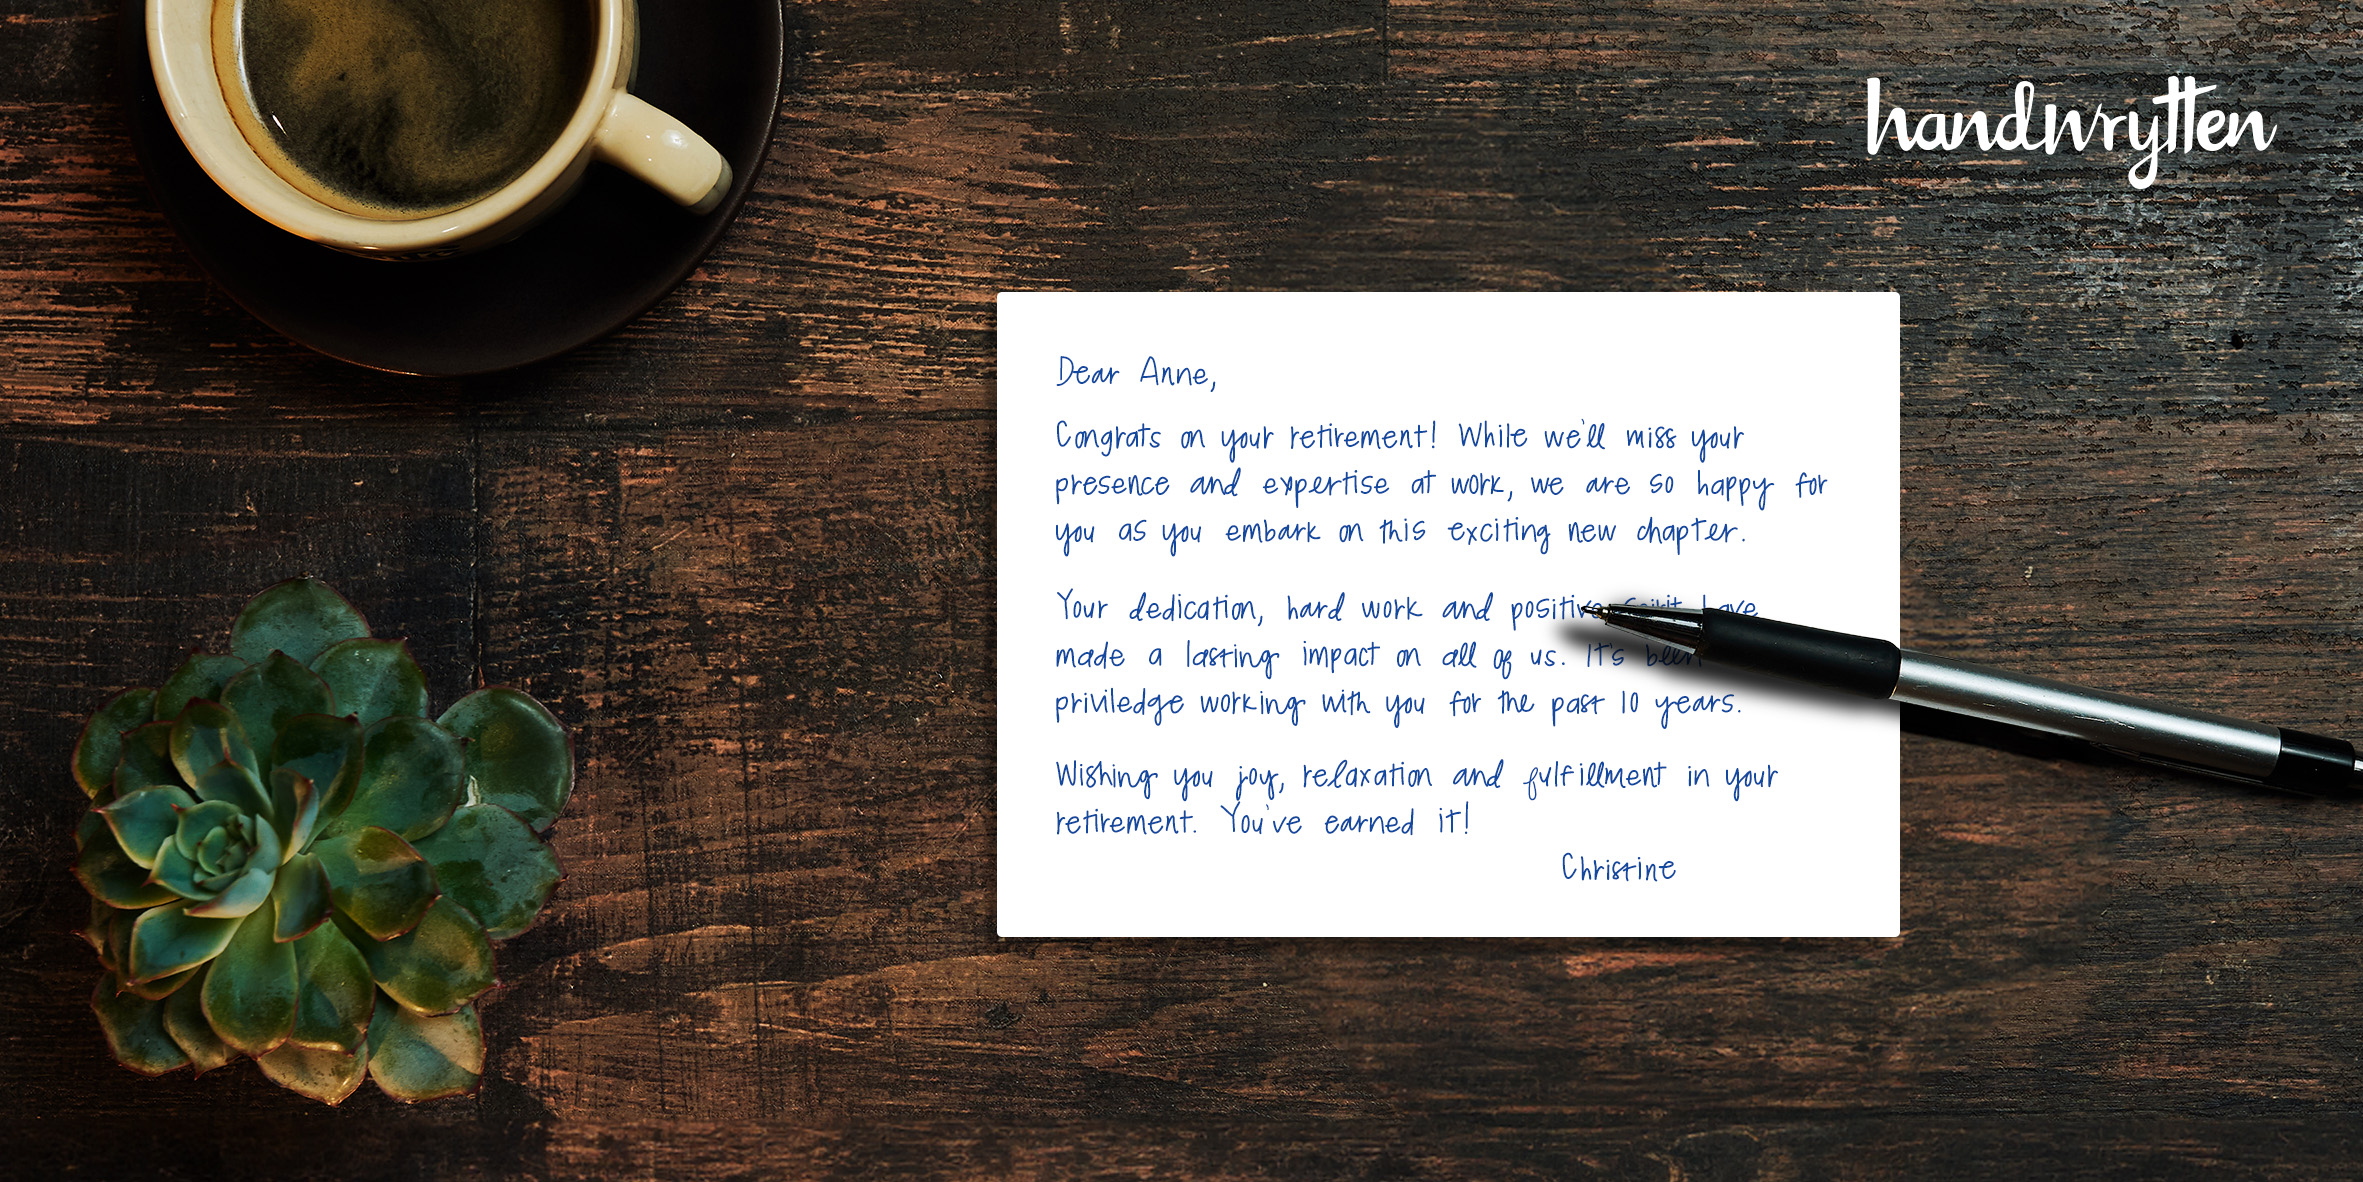 handwrytten
Dear Anne,
Congrats on your retirement! While we'll miss your
presence and expertise at work, we are so happy for
you as you embark on this exciting new chapter.
Your dedication, hard work and positive spirit have
made a lasting impact on all of us. It's been
priviledge working with you for the past 10 years.
Wishing you joy, relaxation and fulfillment in your
retirement. You've earned it!
Christine